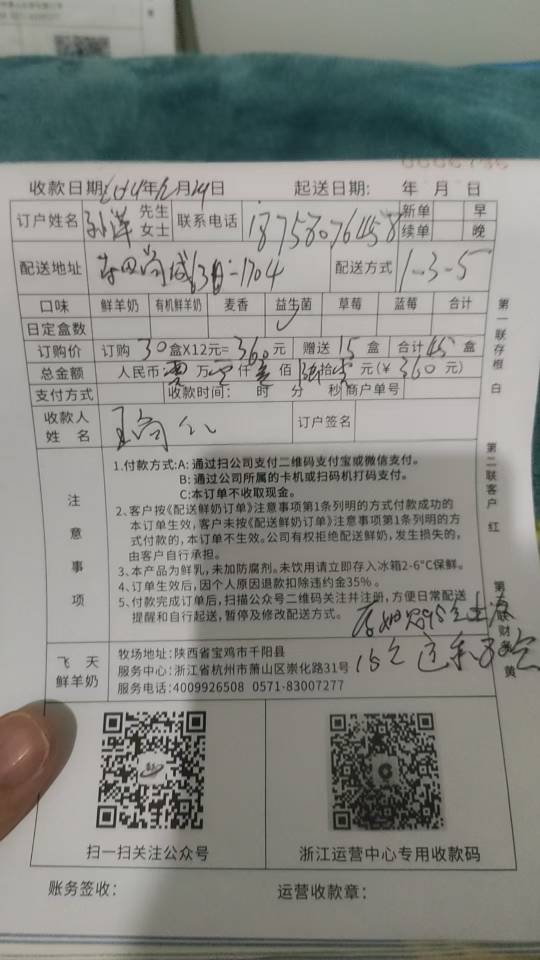 收款日期: 年 月 日 起送日期: 年 月 日
订户姓名 孙洋 先生 女士 联系电话 18758076458 新单 早
续单 晚
配送地址 配送方式 1-3-5
口味 鲜羊奶 有机鲜羊奶 麦香 益生菌 草莓 蓝莓 合计
日定盒数
订购价 订购 30 盒X12元= 360 元 赠送 15 盒 合计 45 盒
总金额 人民币 万 仟 佰 拾 元(¥ 360 元)
支付方式 收款时间: 时 分 秒 商户单号
收款人姓名 订户签名
注意事项
1.付款方式:A: 通过扫公司支付二维码支付宝或微信支付。
B: 通过公司所属的卡机或扫码机打码支付。
C:本订单不收取现金。
2、客户按《配送鲜奶订单》注意事项第1条列明的方式付款成功的
本订单生效,客户未按《配送鲜奶订单》注意事项第1条列明的方
式付款的,本订单不生效。公司有权拒绝配送鲜奶,发生损失的,
由客户自行承担。
3、本产品为鲜乳,未加防腐剂。未饮用请立即存入冰箱2-6°C保鲜。
4、订单生效后,因个人原因退款扣除违约金35%。
5、付款完成订单后,扫描公众号二维码关注并注册,方便日常配送
提醒和自行起送,暂停及修改配送方式。
飞天鲜羊奶
牧场地址:陕西省宝鸡市千阳县
服务中心:浙江省杭州市萧山区崇化路31号
服务电话:4009926508 0571-83007277
扫一扫关注公众号 浙江运营中心专用收款码
账务签收: 运营收款章:
第一联存根 白
第二联客户 红
财务 黄